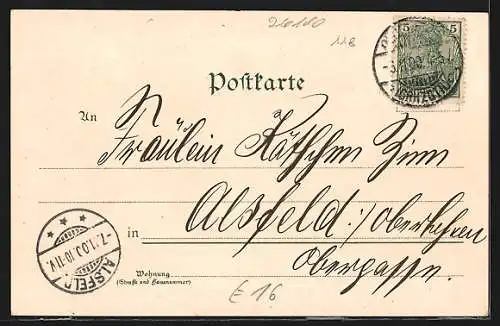 26110
118
5 5
Postkarte
An
Fräulein Käthchen Zinn
Alsfeld /Oberhessen
in
Obergasse.
Wohnung
(Straße und Hausnummer)
ALSFELD
7.1.00.10-11V.
E 16